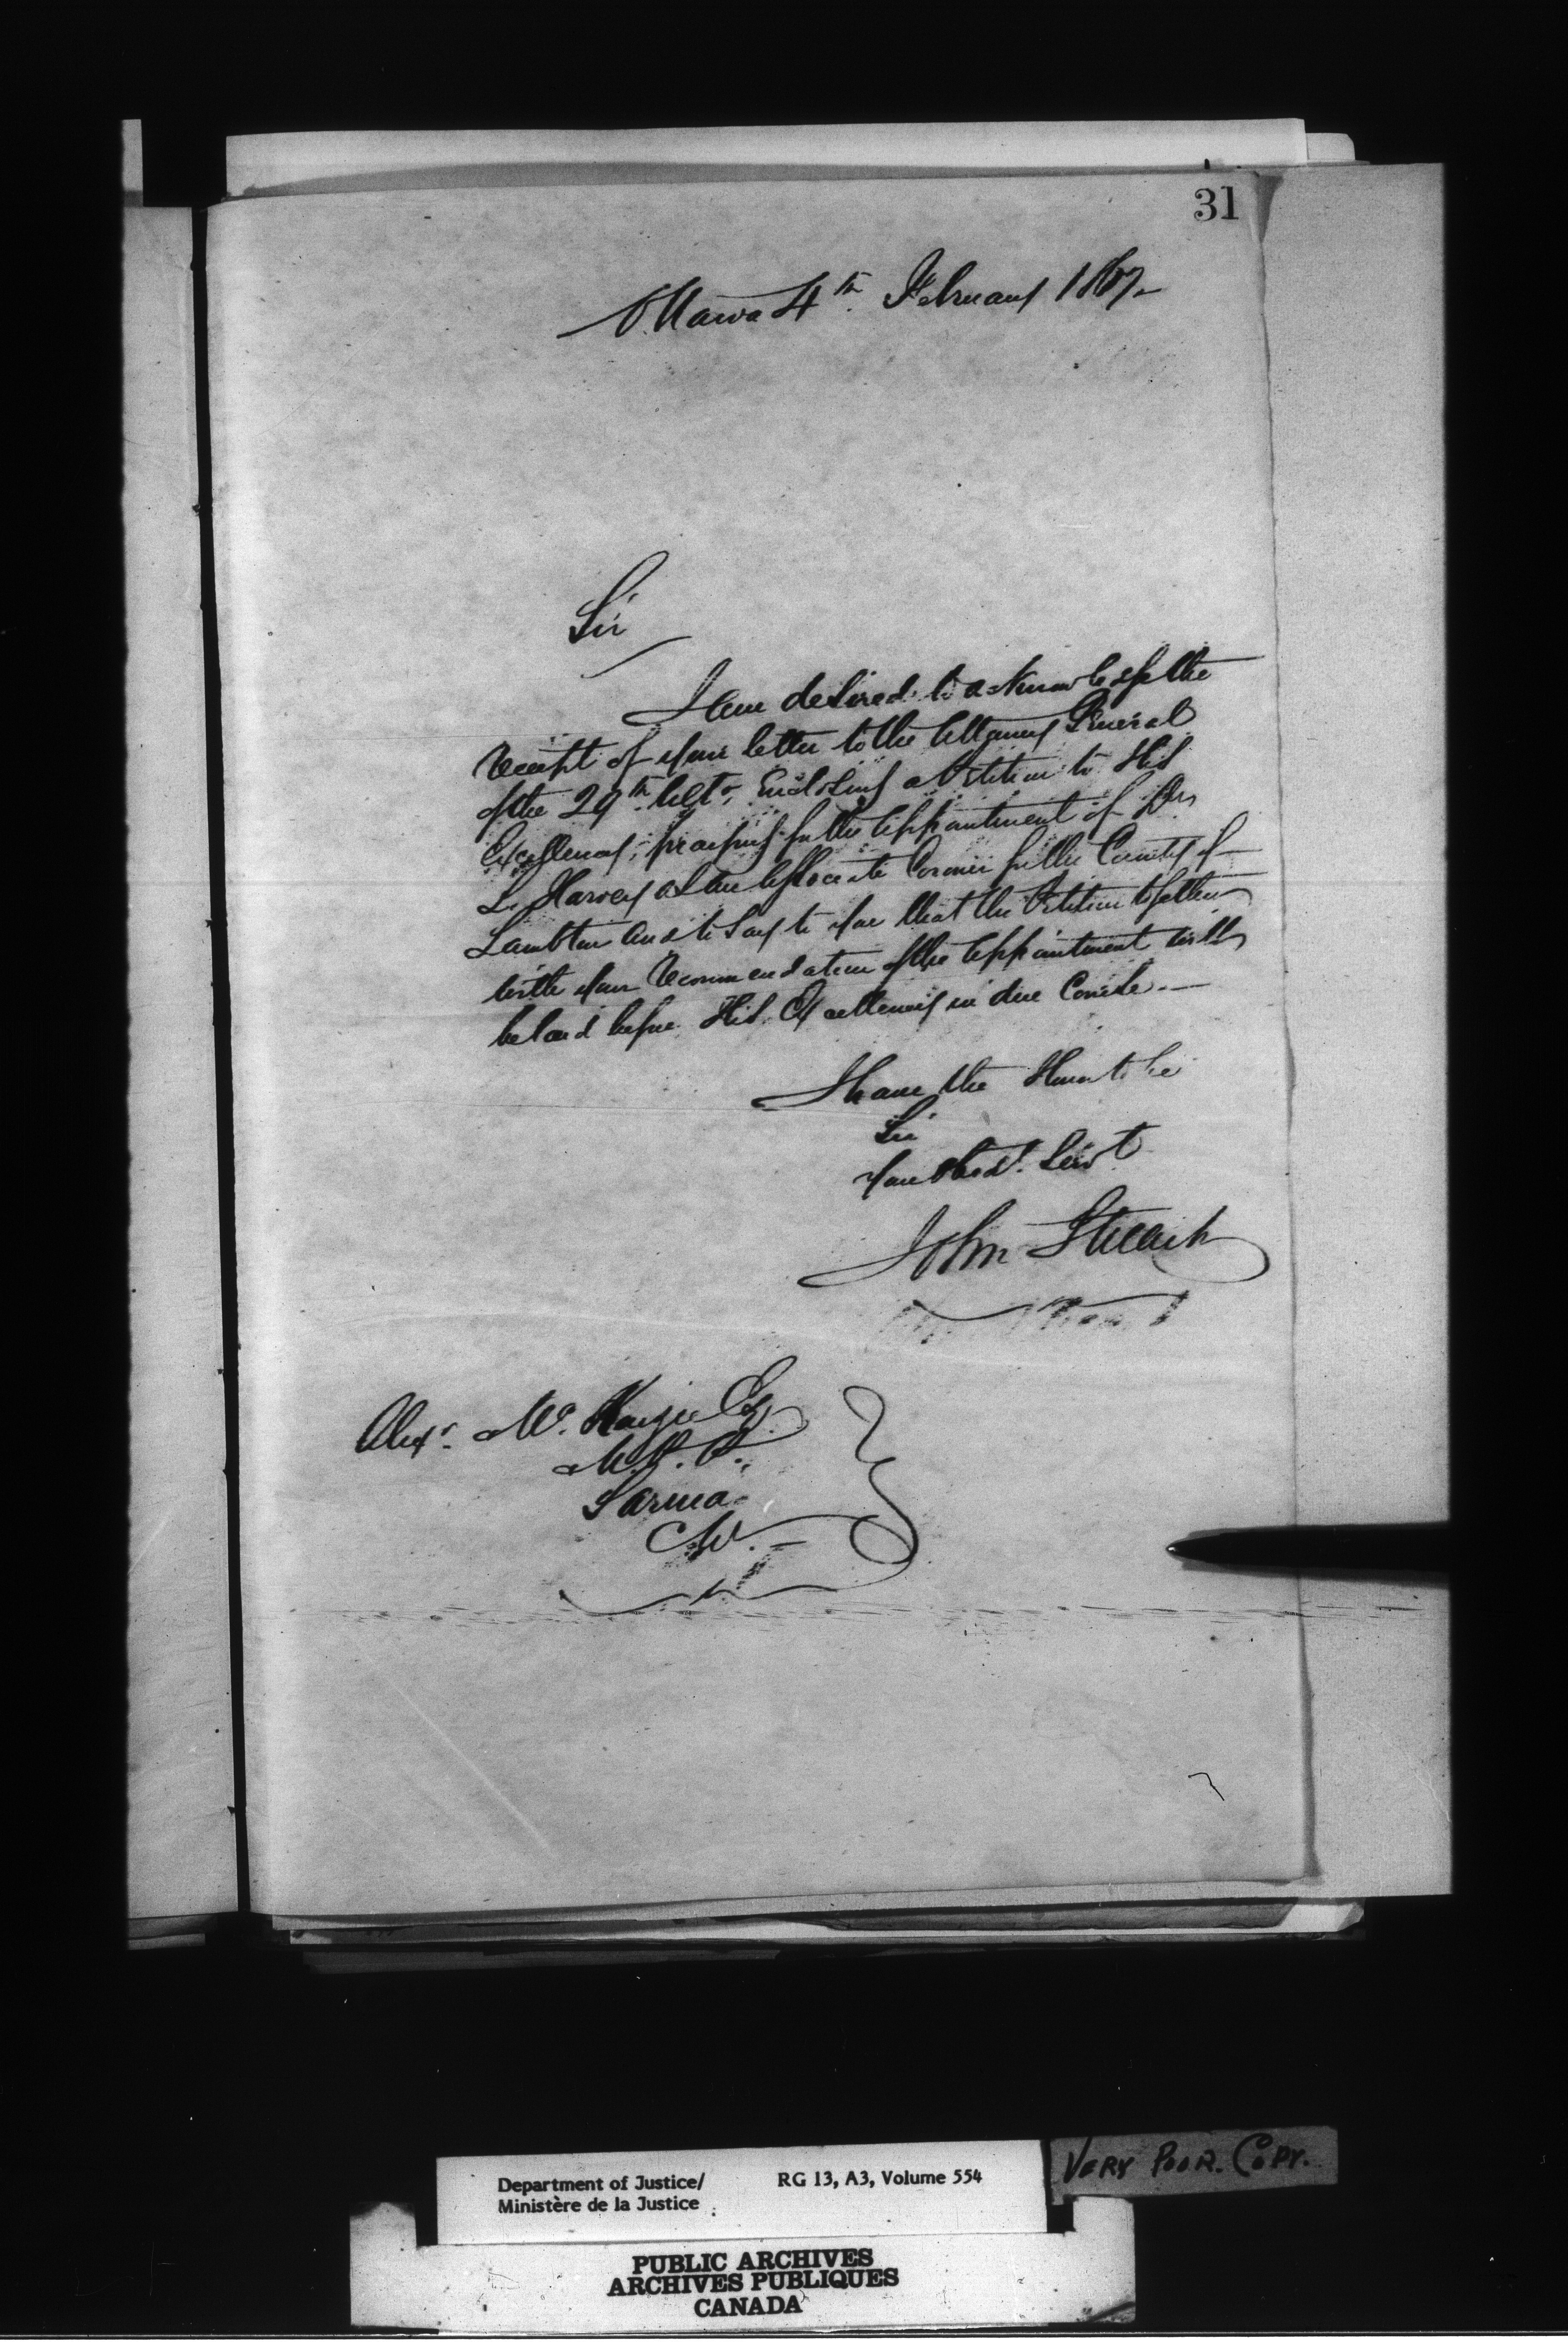 31
Ottawa 4th February 1867
Sir
I am desired to acknowledge the
receipt of your letter to the Attorney General
of the 29th Ulto, Enclosing a Petition to His
Excellency, praying for the Appointment of Dr
L. Harvey as an Associate Coroner for the County of
Lambton and to say to you that the Petition together
with your Recommendation of the Appointment will
be laid before His Excellency in due Course.—
I have the Honor to be
Sir
Your Obedt. Servt
John
Alexr. Mc. Kenzie Esq
M.P.P.
Sarnia
C.W.
VERY POOR. COPY.
Department of Justice/
Ministère de la Justice
RG 13, A3, Volume 554
PUBLIC ARCHIVES
ARCHIVES PUBLIQUES
CANADA